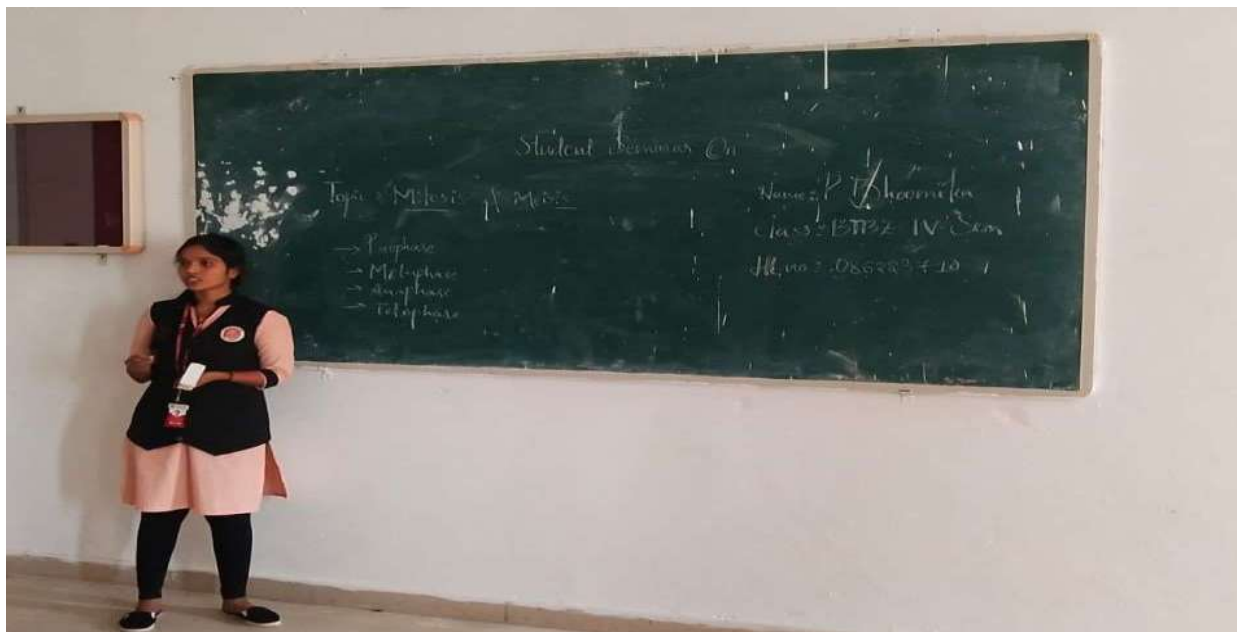 Student Seminar On
Topic : Mitosis & Meisis
→ Prophase
→ Metaphase
→ Anaphase
→ Telophase
Name : P Bhoomika
Class : IV Sem